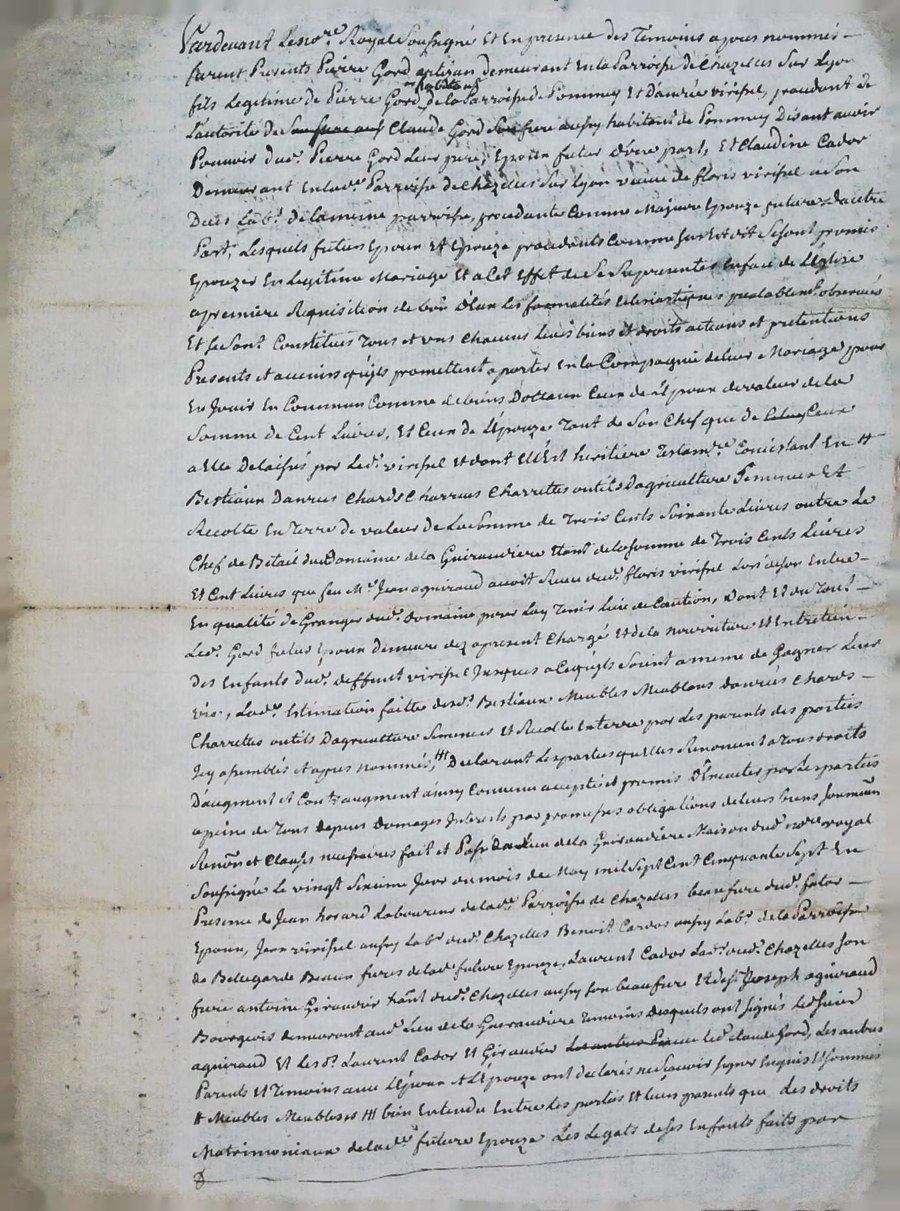 Pardevant Le no.re Royal Soussigné Et En presence des Temoins apres nommés –
furent Presents Pierre Gord artisan demeurant En la Parroisse de Chazelles Sur Lyon
habitans
fils Legitime de Pierre Gord de la Parroisse de Pommey Et Danrie virissel, procedant de
L'autorité de Claude Gord Son frere aussy habitant de Pommey Disant avoir
Pouvoir dud.t Pierre Gord Leur pere, Epoux futur d'une part, Et Claudine Cador
Demeurant En lad.e Parroisse de Chazelles Sur Lyon veuve de floris virissel a Son
Deces Lab.r de la meme parroisse, procedante Comme Majeure Epouze future d'autre
Part, Lesquels futurs Epoux Et Epouze procedants Comme Sus Est dit Se sont promis
Epouzer En Legitime Mariage Et a Cet Effet de Se Representer En face de L'Eglise
a premiere Requisition de L'un d'Eux Les formalités Eclesiastiques prealablem.t observées
Et Se Sont Constitués Tous et uns Chacuns Leurs biens Et droits actions et pretentions
Presents et avenirs qu'ils promettent aporter En la Compagnie de leur Mariage pour
En Jouir En Commun Comme de biens Dotaux Ceux de L'Epoux de valeur de la
Somme de Cent Livres, Et Ceux de L'Epouze Tant de Son Chef que de Ceux
a Elle Delaissés par Led.t virissel Et dont Elle Est heritiere Testam.re Concistant En #
Bestiaux Danrées Chards Charrues Charrettes outils Dagriculture Semences Et
Recolte En Terre de valeur de La Somme de Trois Cents Soixante Livres outre Le
Chef de Bétail du Domaine de la Guiraudiere Etant de la Somme de Trois Cents Livres
Et Cent Livres que feu M.r Jean aguiraud avoit Receu dud.t floris virissel Lors de son Entrée –
En qualité de Granger dud.t Domaine pour Luy Tenir Lieu de Caution, Dont Et du Tout –
Led.t Gord futur Epoux Demeure dez apresent Chargé Et de la nourriture Et Entretien –
Des Enfants dud.t deffunt virissel Jusques a Ce qu'ils Soient a meme de Gagner Leur
vie, Lad.e Estimation faitte desd.ts Bestiaux Meubles Meublans danrées Chards –
Charrettes outils Dagriculture Semences Et Recolte En terre par des parents des parties
Icy assemblés et apres nommés, ### Declarant Les parties qu'elles Renoncent a Tous droits
D'augment et Contraugment ainsy Convenu accepté et promis D'Executer par Les parties
a peine de Tous depens Domages Interests par promesses obligations de leurs biens Soumission
Renon.on et Clauses necessaires fait et Passé au Lieu de la Guiraudiere Maison dud.t no.re royal
Soussigné Le vingt Sixieme Jour du mois de May mil Sept Cent Cinquante Sept En
Presence de Jean horard Laboureur de lad.e Parroisse de Chazelles beaufrere dud.t futur –
Epoux, Jean virissel aussy Lab.r dud.t Chazelles Benoit Cardos aussy Lab.r de la Parroisse
de Bellegarde Beaux freres de lad.e future Epouze, Laurent Cador Lab.r dud.t Chazelles Son
frere antoine Giraudier dud.t Chazelles aussy Son beaufrere Et de S.r Joseph aguiraud
Bourgeois demeurant aud.t Lieu de la Guiraudiere Temoins desquels ont signés Led. Sieur
aguiraud Et Les d.ts Laurent Cador Et Giraudier Led.t Claude Gord, Les autres
Parents et Temoins avec L'Epoux et L'Epouze ont declarés ne Scavoir Signer Enquis Et Sommés
# Meubles Meublants ### bien Entendu Entre Les parties Et leurs parents que Les droits
Matrimoniaux de lad.e future Epouze Les Legats de Ses Enfants faits par